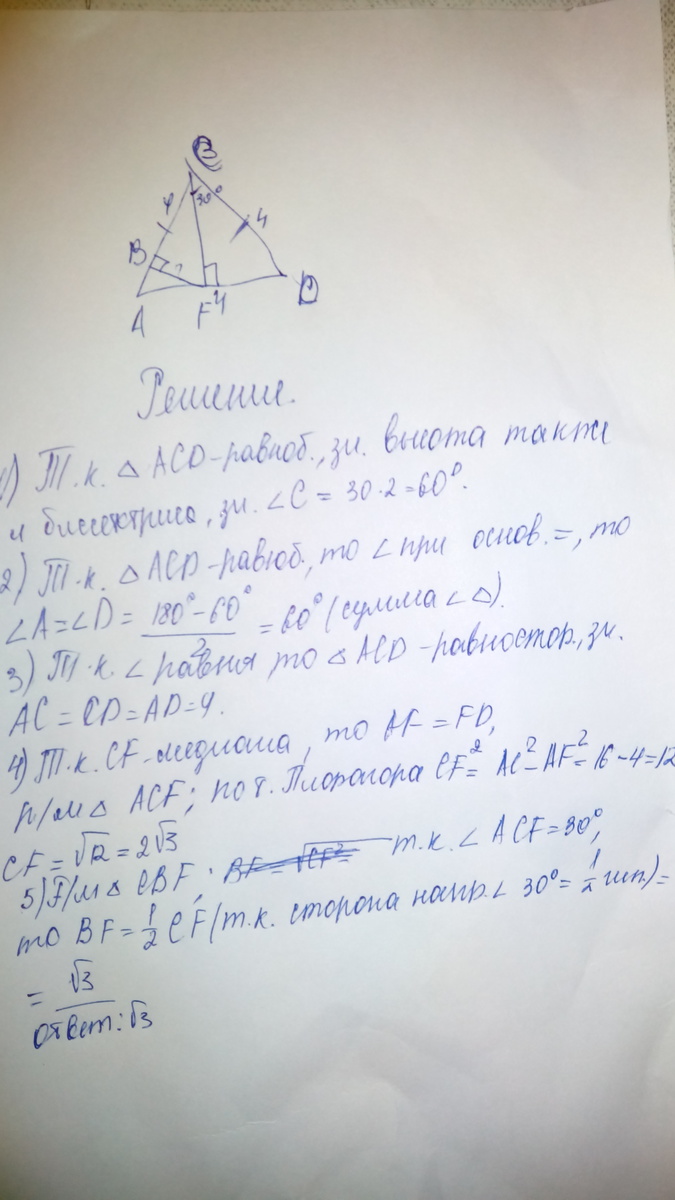 B
4
30°
4
B
?
A
F
4
D
Решение.
1) Т.к. △ ACD-равноб., зн. высота также
и биссектриса, зн. ∠C = 30·2=60°.
2) Т.к. △ ACD-равноб., то ∠ при основ. =, то
∠A=∠D= 180°-60° / 2 = 60° (сумма ∠△).
3) Т.к. ∠ равны то △ ACD-равностор., зн.
AC = CD = AD = 4.
4) Т.к. CF-медиана, то AF = FD,
Р/м △ ACF; по т. Пифагора CF² = AC² - AF² = 16-4=12
CF = √12 = 2√3
5) Р/м △ CBF, BF = √CF² т.к. ∠ ACF = 30°,
то BF = 1/2 CF (т.к. сторона напр. ∠ 30° = 1/2 гип.) =
= √3
ответ: √3